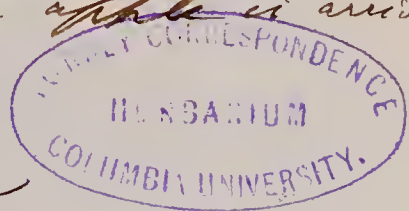 apple is arri
TORREY CORRESPONDENCE
HERBARIUM
COLUMBIA UNIVERSITY.